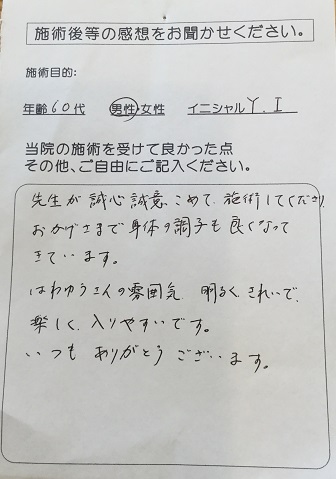 施術後等の感想をお聞かせください。
施術目的:
年齢60代 男性・女性 イニシャルY.I
当院の施術を受けて良かった点
その他、ご自由にご記入ください。
先生が誠心誠意こめて、施術してくださり
おかげさまで身体の調子も良くなって
きています。
はわゆうさんの雰囲気、明るく、きれいで、
楽しく、入りやすいです。
いつも ありがとう ございます。